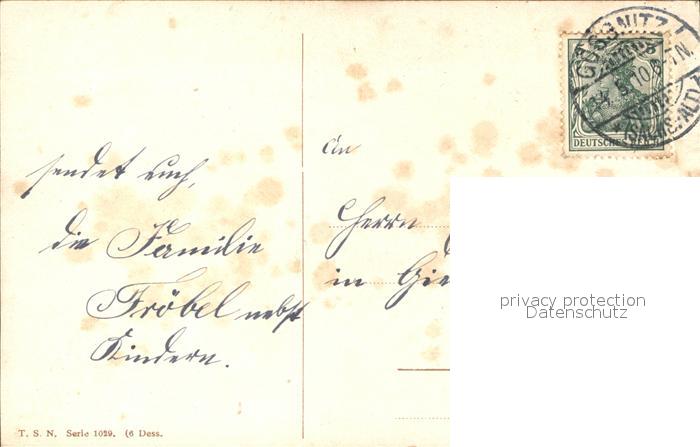 sendet euch,
die Familie
Fröbel nebst
Kindern.
T. S. N. Serie 1029. (6 Dess.
An
Herrn
in
GÖSSNITZ
DEUTSCHES REICH
privacy protection
Datenschutz